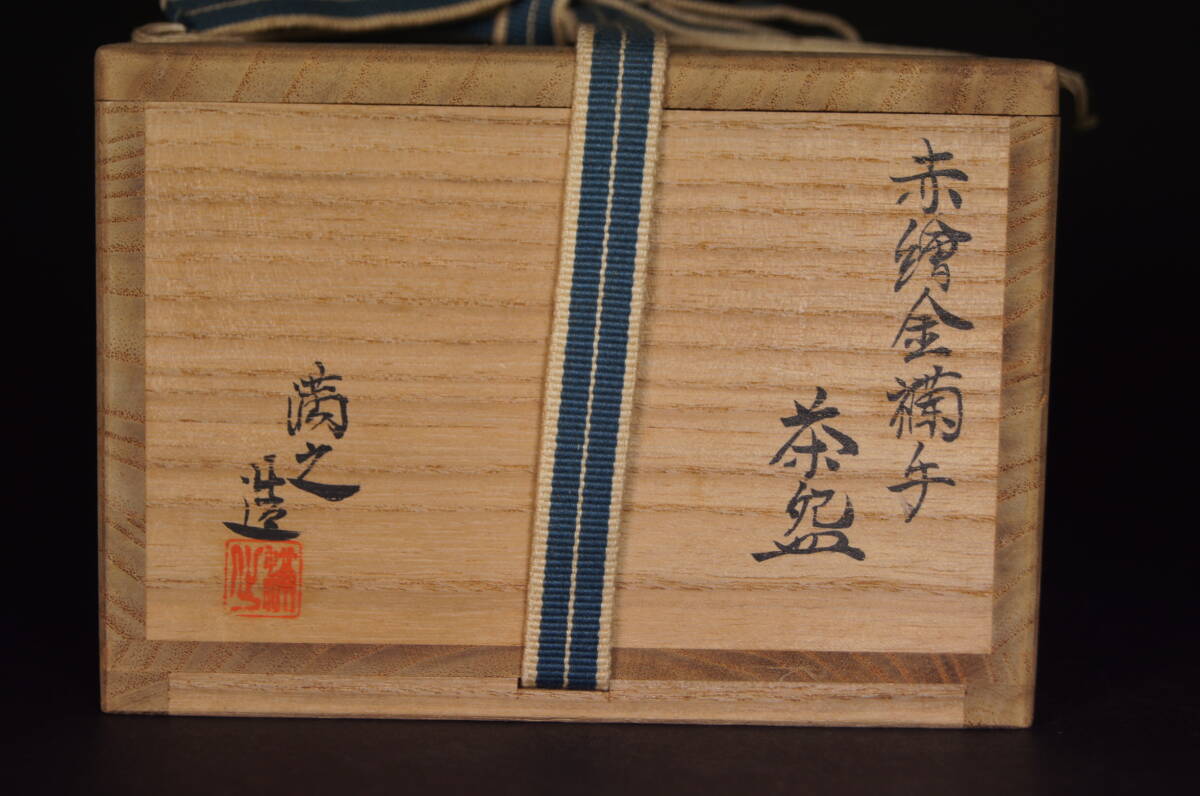 赤繪金襴手
茶盌
満之
造
満之